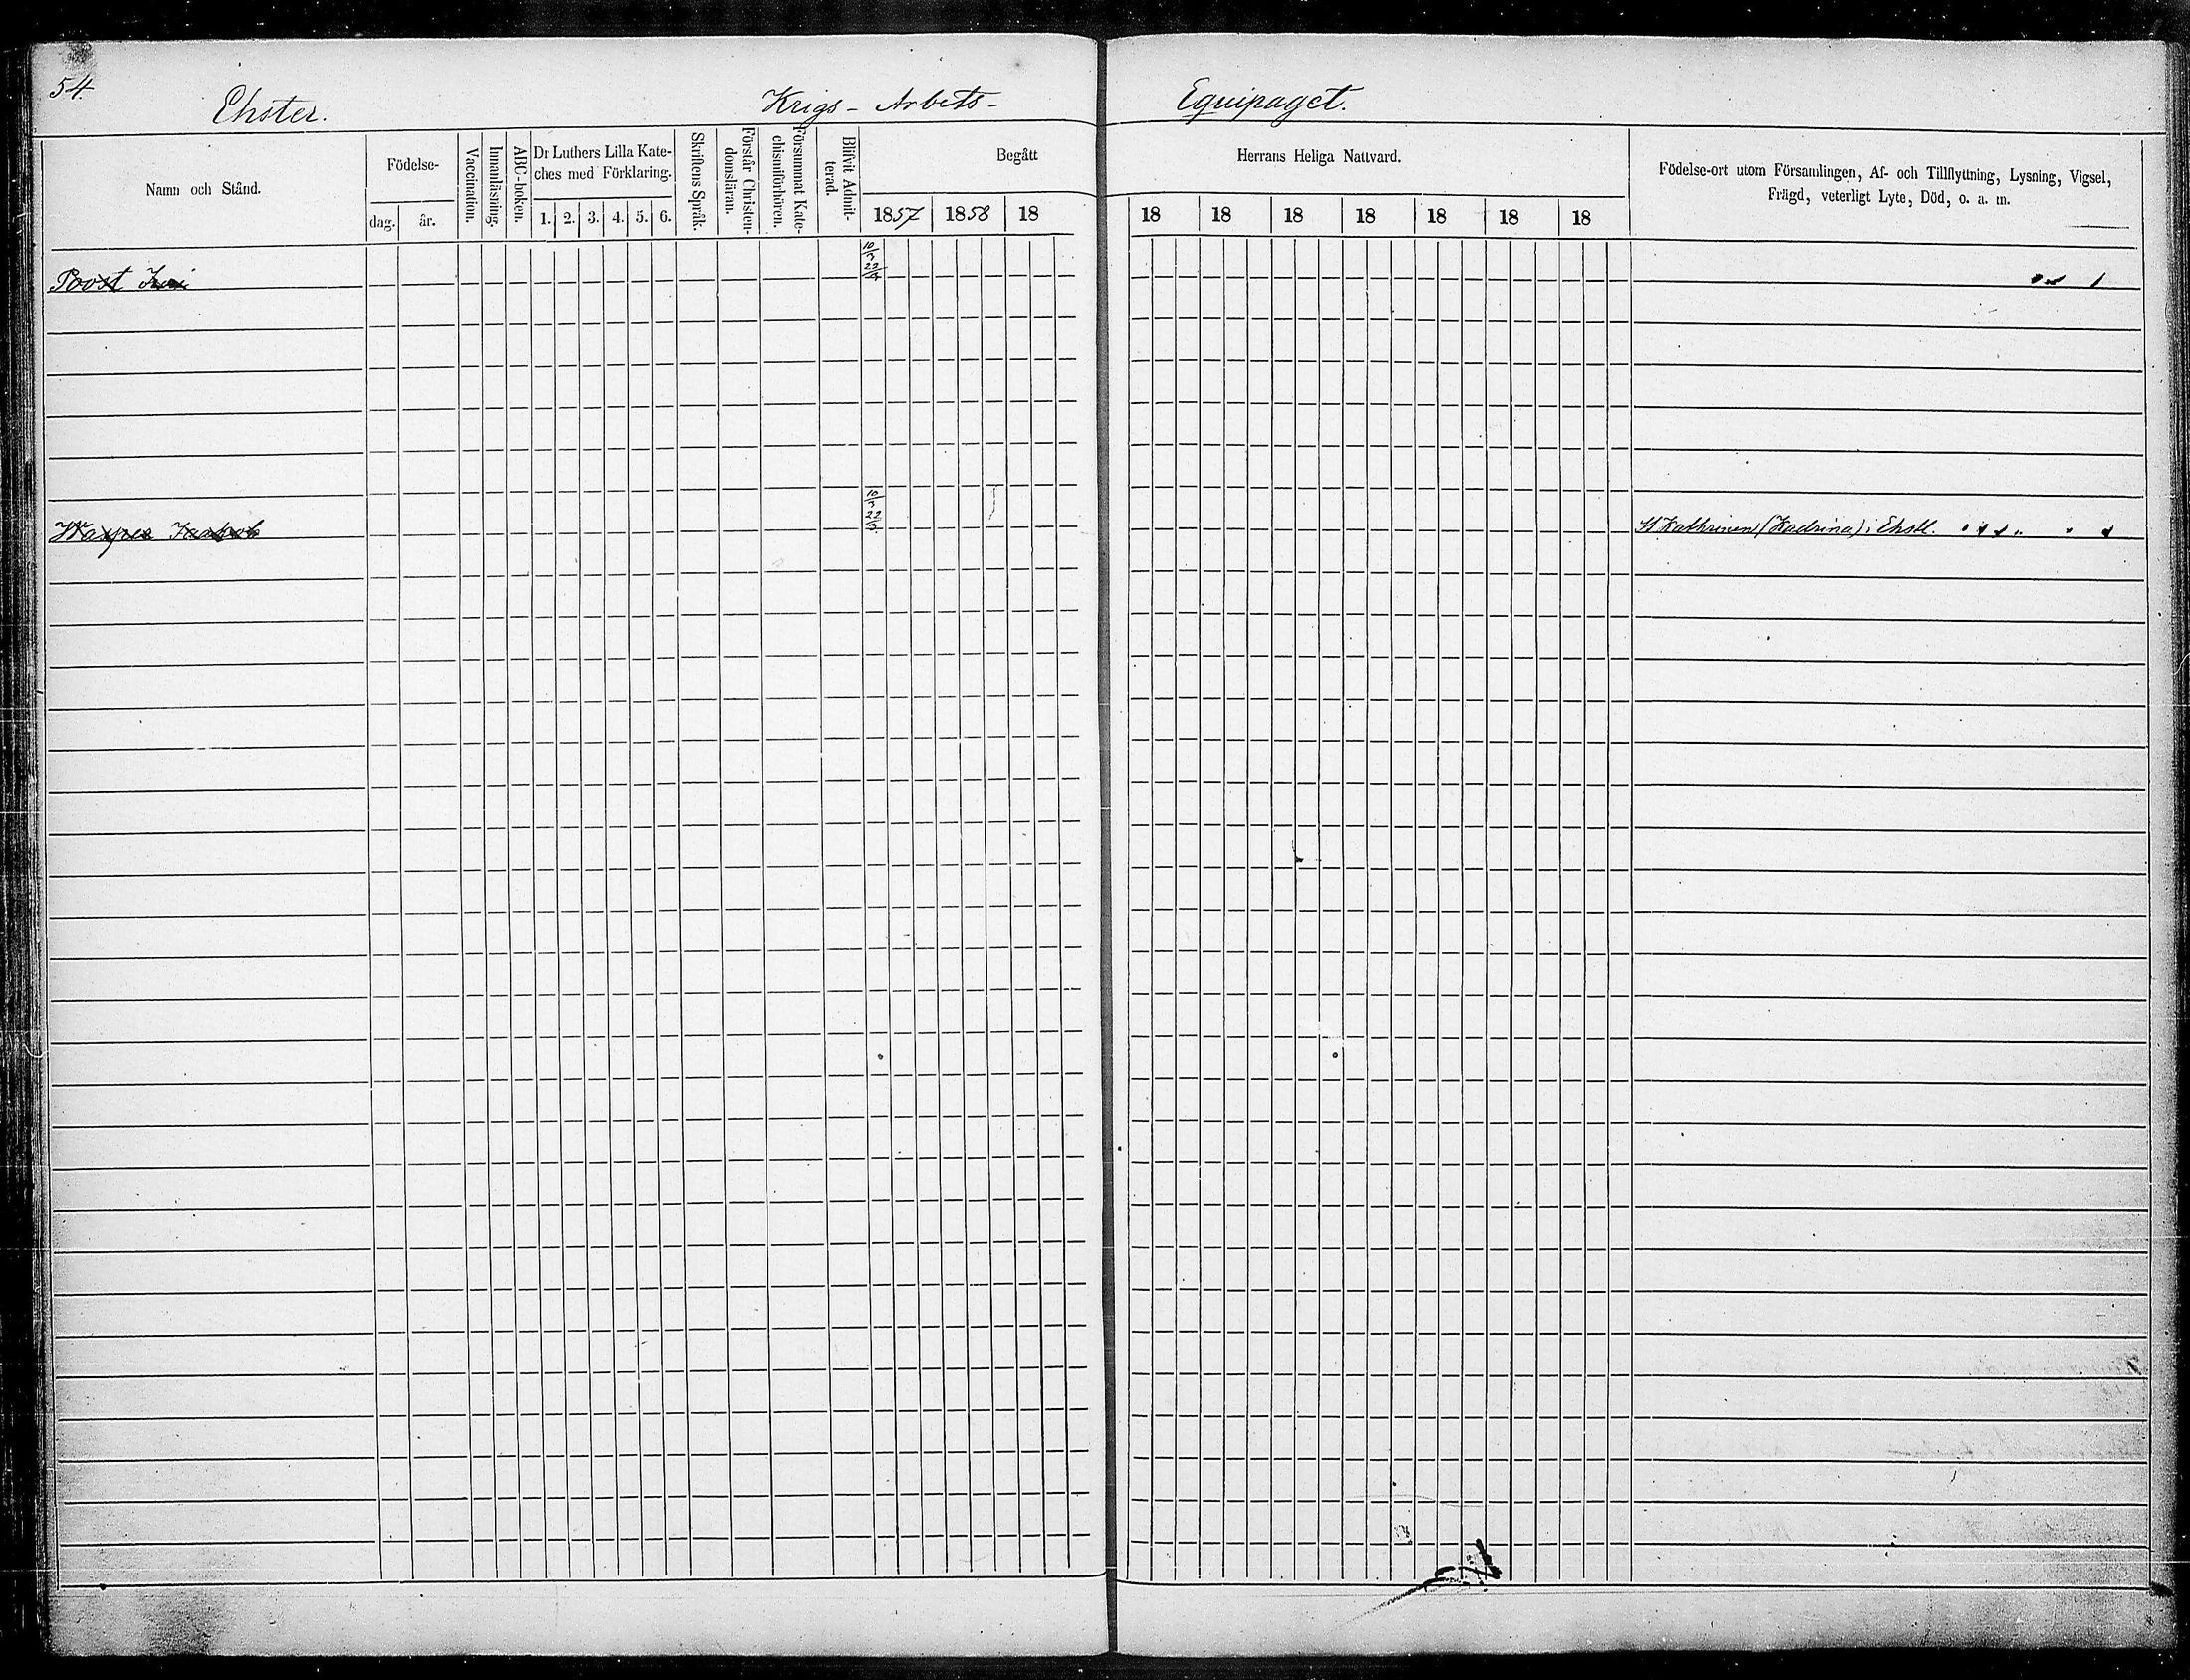 54.
Ehster.
Krigs- Arbets-
Equipaget.
Namn och Stånd.
Födelse-
dag.
år.
Vaccination.
Innanläsning.
ABC-boken.
Dr Luthers Lilla Kate-
ches med Förklaring.
1. 2. 3. 4. 5. 6.
Skriftens Språk.
Förstår Christen-
domsläran.
Försummat Kate-
chismiförhören.
Blifvit Admit-
terad.
Begått
Herrans Heliga Nattvard.
1857 1858 18
18 18 18 18 18 18 18
Födelse-ort utom Församlingen, Af- och Tillflyttning, Lysning, Vigsel,
Frägd, veterligt Lyte, Död, o. a. m.
10/3
22/3
Poost
10/3
22/3
St Kathrinen (Kadrina) i Ehstl.